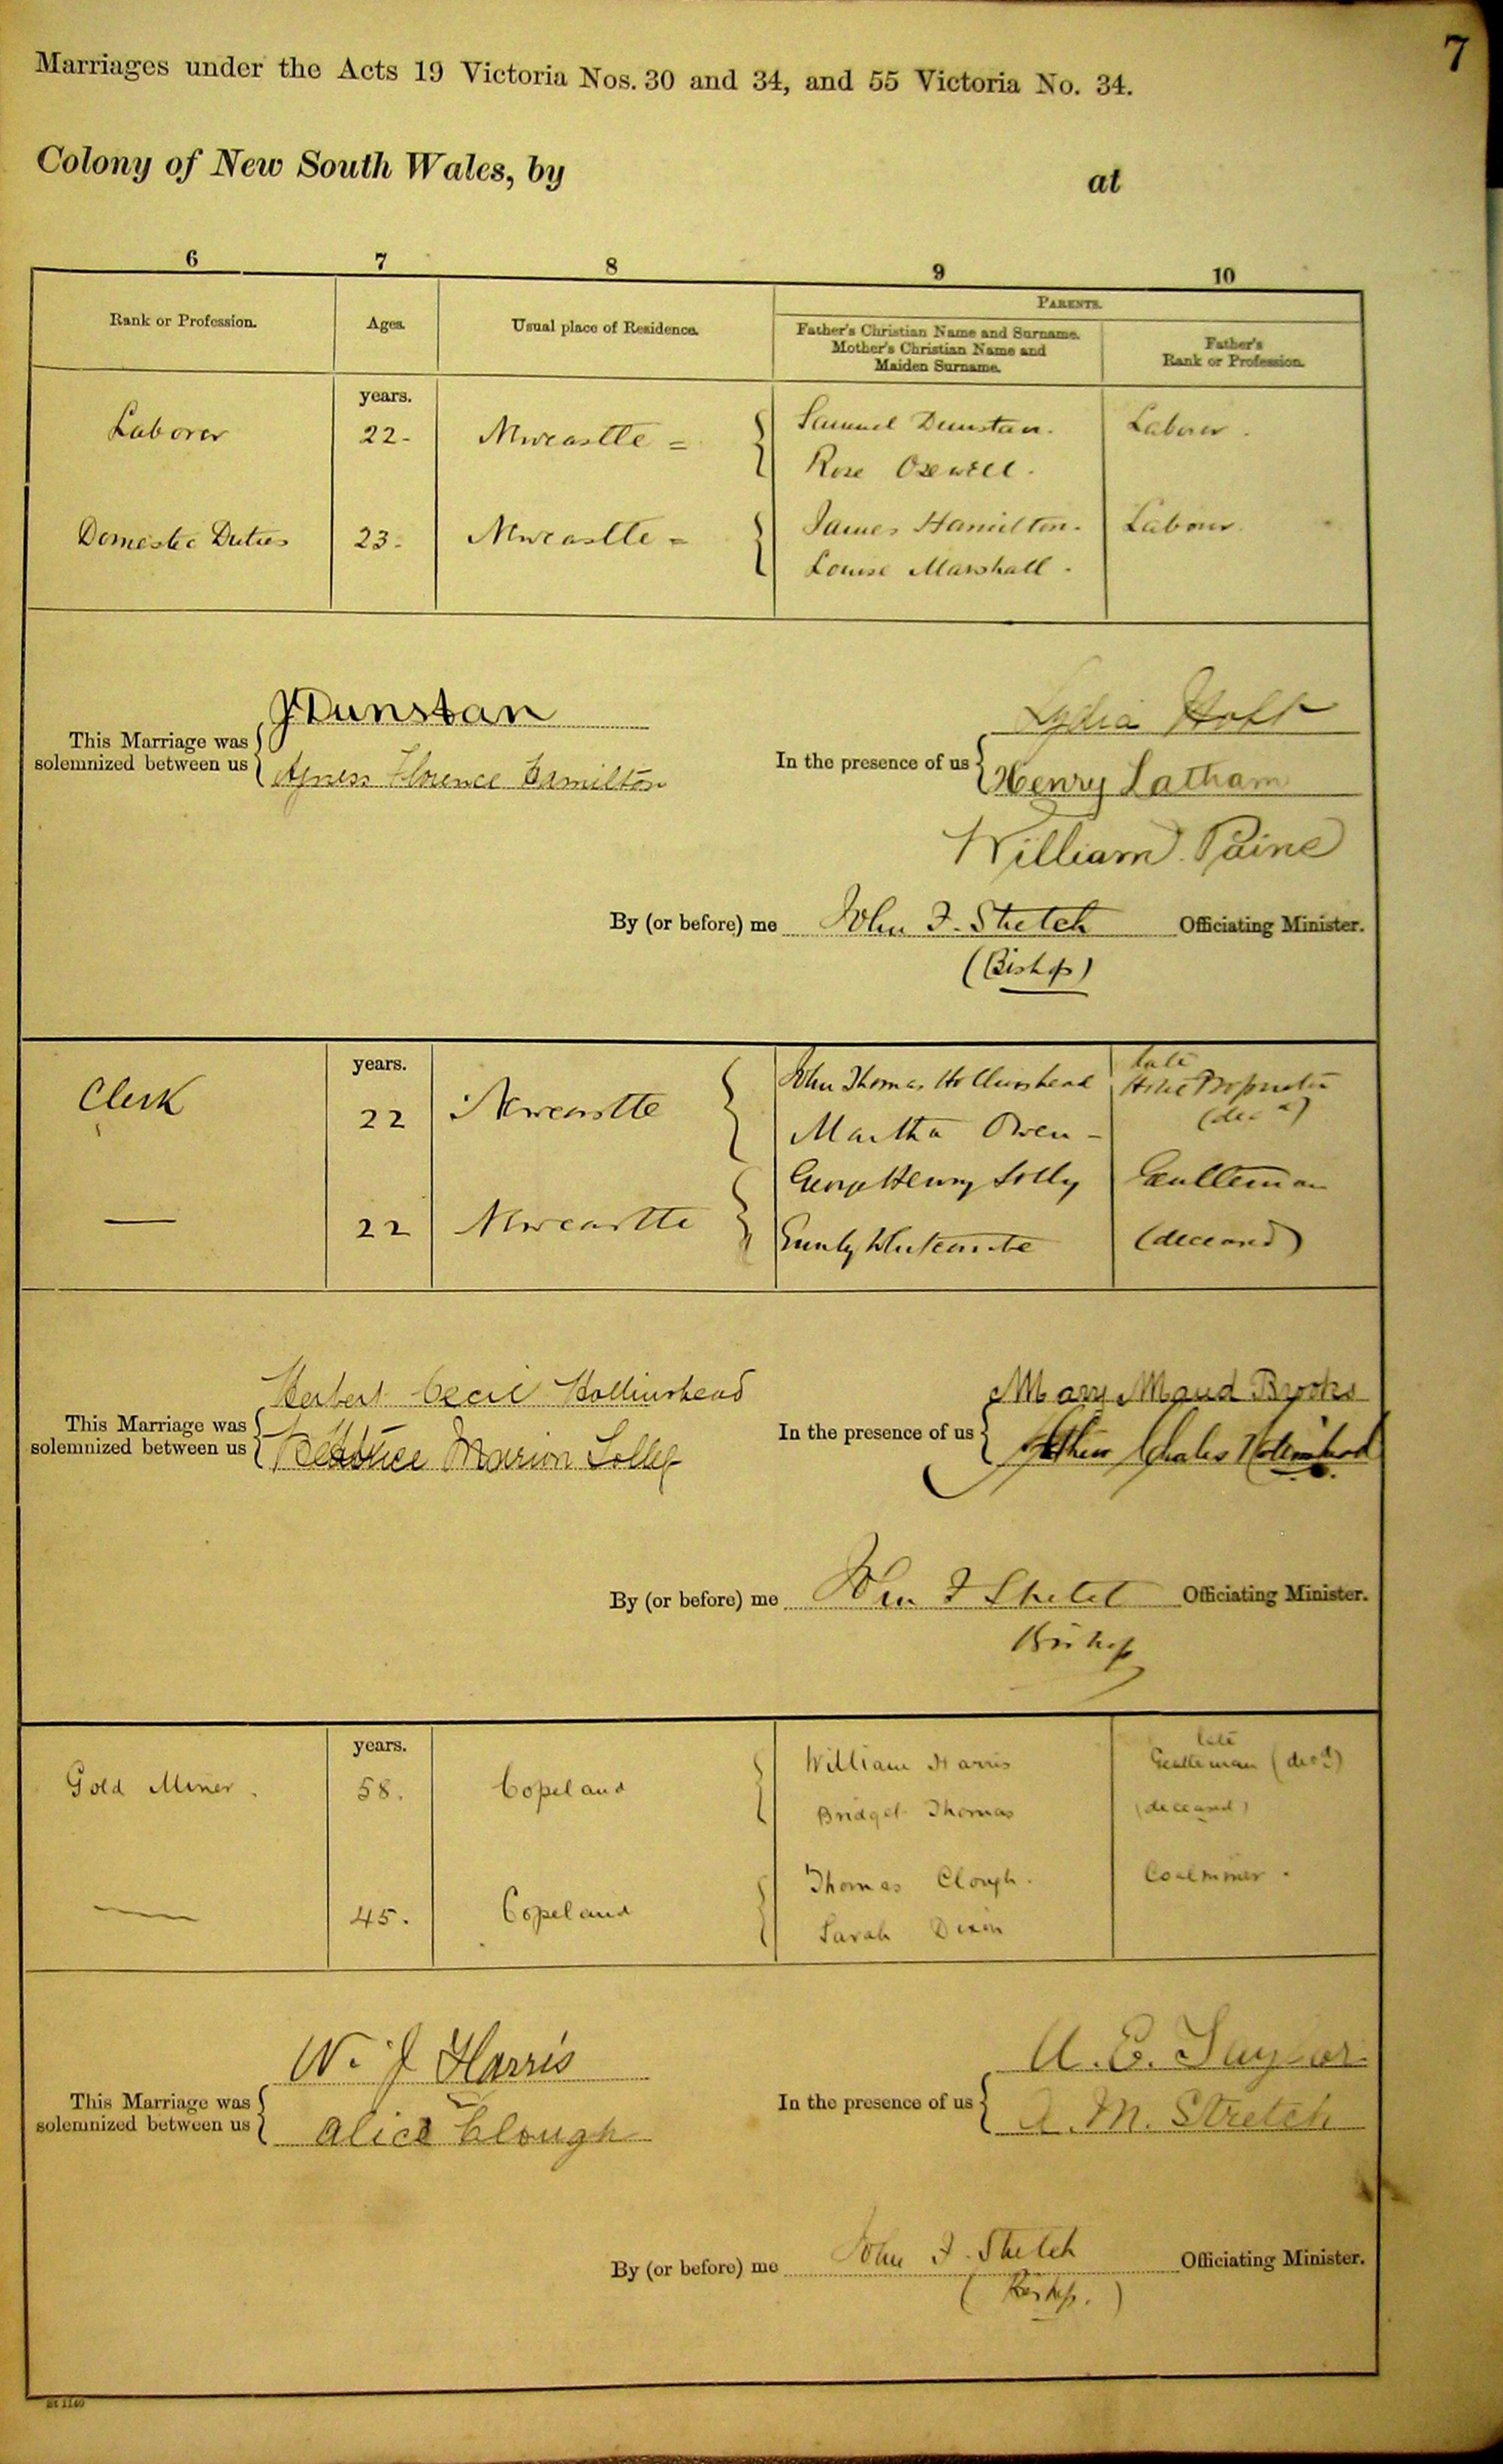 7
Marriages under the Acts 19 Victoria Nos. 30 and 34, and 55 Victoria No. 34.
Colony of New South Wales, by at
6 7 8 9 10
Rank or Profession. Ages. Usual place of Residence. PARENTS.
Father's Christian Name and Surname. Mother's Christian Name and Maiden Surname. Father's Rank or Profession.
years.
Laborer 22- Newcastle = Samuel Dunstan. Laborer.
Rose
Domestic Duties 23- Newcastle = James Hamilton. Laborer
Louise Marshall.
JDunstan Lydia Holt
This Marriage was solemnized between us In the presence of us
Agness Florence Hamilton Henry Latham
William Paine
By (or before) me John F. Stretch Officiating Minister.
(Bishop)
years.
Clerk 22 Newcastle John Thomas Hollinshead late Hotel Proprietor (decd)
Martha Owen -
— 22 Newcastle George Henry Solly Gentleman
Emily Whitcombe (deceased)
Herbert Cecil Hollinshead Mary Maud Brooks
This Marriage was solemnized between us In the presence of us
Beatrice Marion Solly Arthur Charles Hollinshead
By (or before) me John F Stretch Officiating Minister.
Bishop
years.
Gold Miner. 58. Copeland William Harris late Gentleman (decd)
Bridget Thomas (deceased)
— 45. Copeland Thomas Clough. Coalminer.
Sarah Dixon
W. J Harris A. E. Taylor
This Marriage was solemnized between us In the presence of us
Alice Clough A. M. Stretch
By (or before) me John F. Stretch Officiating Minister.
(Bishop.)